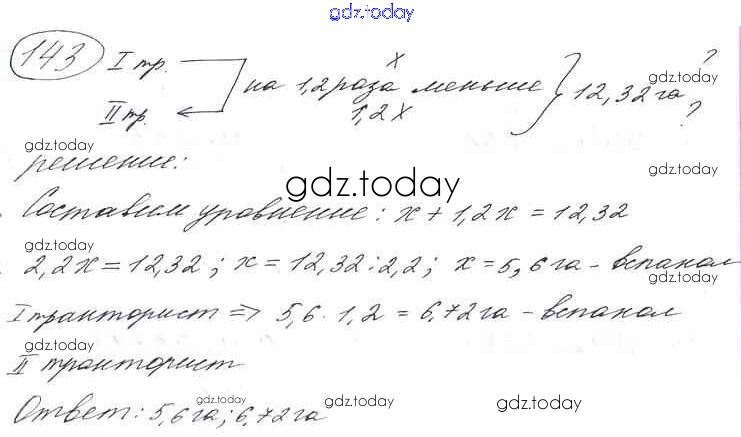 gdz.today
143 I тр. x ?
на 1,2 раза меньше } 12,32 га gdz.today
II тр. 1,2x ?
gdz.today
решение: gdz.today
gdz.today
Составим уравнение: x + 1,2x = 12,32
gdz.today gdz.today
2,2x = 12,32; x = 12,32:2,2; x = 5,6 га - вспахал
gdz.today
I тракторист => 5,6 · 1,2 = 6,72 га - вспахал
gdz.today
II тракторист
gdz.today gdz.today gdz.today
Ответ: 5,6 га; 6,72 га